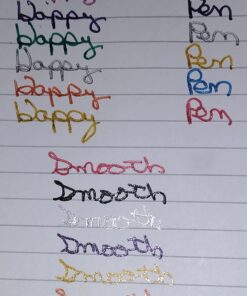 Happy Pen
Happy Pen
Happy Pen
Happy Pen
Happy Pen
Smooth
Smooth
Smooth
Smooth
Smooth